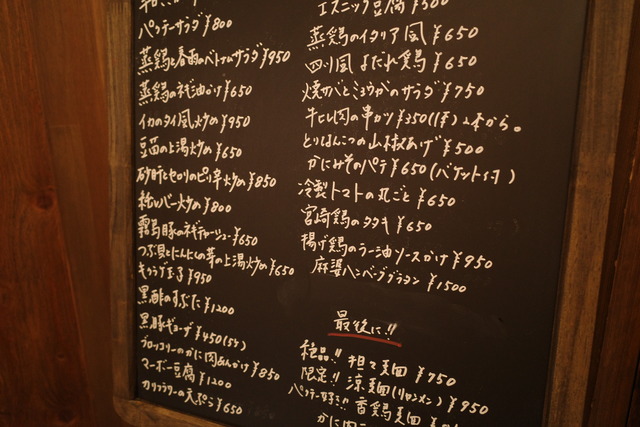 パクチーサラダ ¥800
蒸鶏と春雨のベトナムサラダ ¥950
蒸鶏のネギ油かけ ¥650
イカのタイ風炒め ¥950
豆苗の上湯炒め ¥650
砂肝とセロリのピリ辛炒め ¥850
レバー炒め ¥800
霧島豚のネギチャーシュー ¥650
つぶ貝とにんにくの芽の上湯炒め ¥650
キクラゲ玉子 ¥950
黒酢のすぶた ¥1200
黒豚ギョーザ ¥450(5ヶ)
ブロッコリーのかに肉あんかけ ¥850
マーボー豆腐 ¥1200
カリフラワーの天ぷら ¥650
エスニック豆腐 ¥500
蒸鶏のイタリア風 ¥650
四川風よだれ鶏 ¥650
焼サバとミョウガのサラダ ¥750
牛にし肉の串カツ ¥350(1本)2本から。
とりはんこつの山椒あげ ¥500
かにみそのパテ ¥650(バケット付)
冷製トマトの丸ごと ¥650
宮崎鶏のタタキ ¥650
揚げ鶏のラー油ソースかけ ¥950
麻婆ハンバーググラタン ¥1500
最後に!!
絶品!! 担々麺 ¥750
限定!! 涼麺(リャンメン) ¥950
パクチー好き!! 香鶏麺